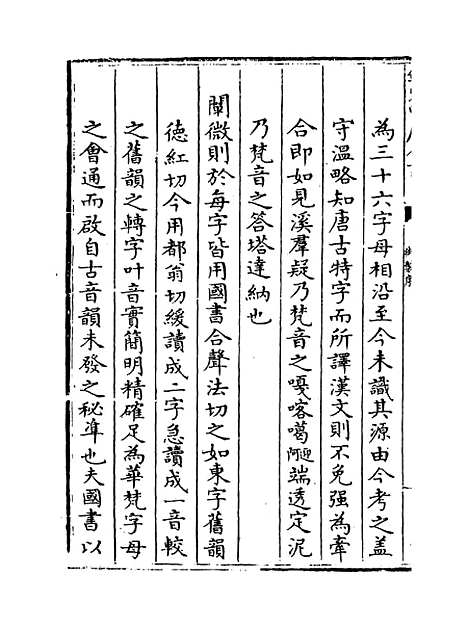 為三十六字母相沿至今未識其源由今考之蓋
守溫略知唐古特字而所譯漢文則不免强為牽
合即如見溪羣疑乃梵音之嘎喀噶迎阿端透定泥
乃梵音之答塔達納也
闡微則於每字皆用國書合聲法切之如東字舊韻
徳紅切今用都翁切緩讀成二字急讀成一音較
之舊韻之轉字叶音實簡明精確足為華梵字母
之會通而啟自古音韻未發之秘凖也夫國書以